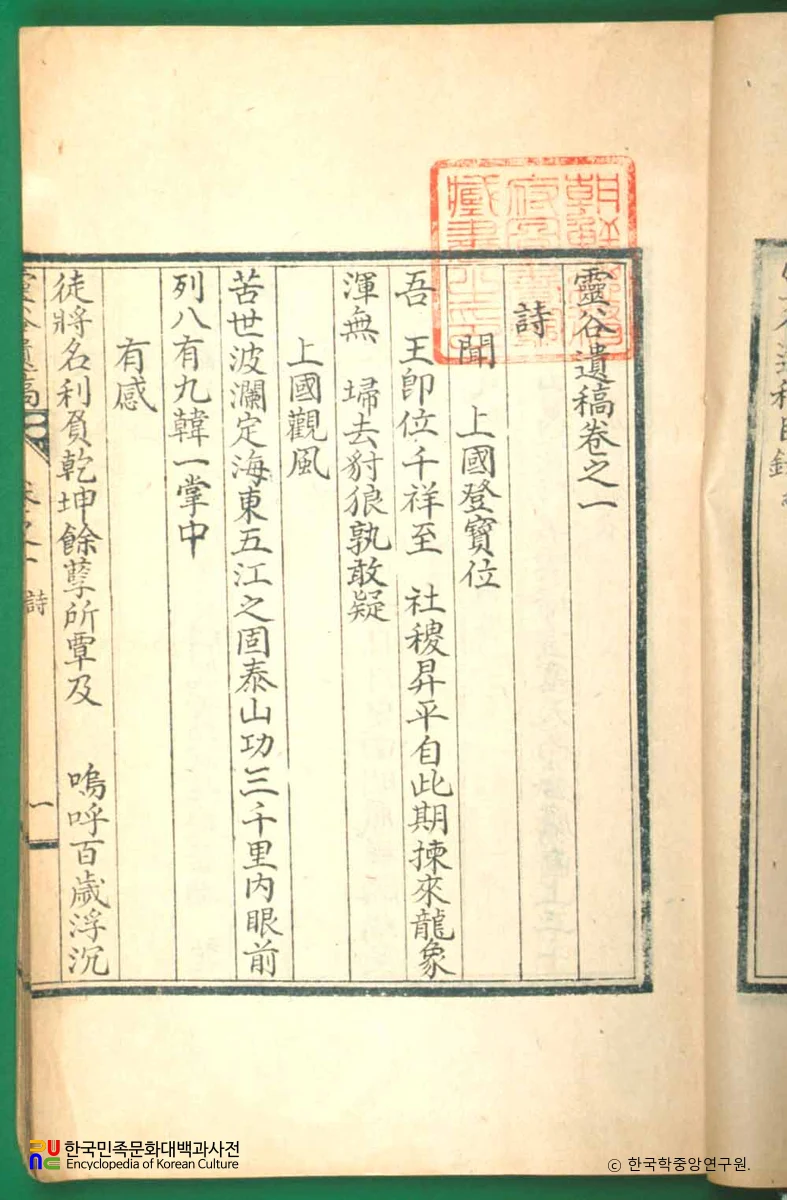 靈谷遺稿卷之一
詩
聞　上國登寶位
吾　王卽位千祥至　社稷昇平自此期揀來龍象
渾無　埽去豺狼孰敢疑
上國觀風
苦世波瀾定海東五江之固泰山功三千里內眼前
列八有九韓一掌中
有感
徒將名利負乾坤餘孽所覃及　嗚呼百歲浮沉
靈谷遺稿　卷之一　詩　一
朝鮮
藏書
한국민족문화대백과사전
Encyclopedia of Korean Culture
© 한국학중앙연구원.